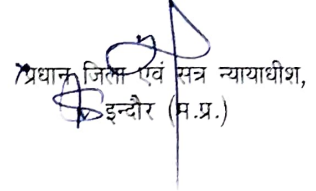 प्रधान जिला एवं सत्र न्यायाधीश,
इन्दौर (म.प्र.)